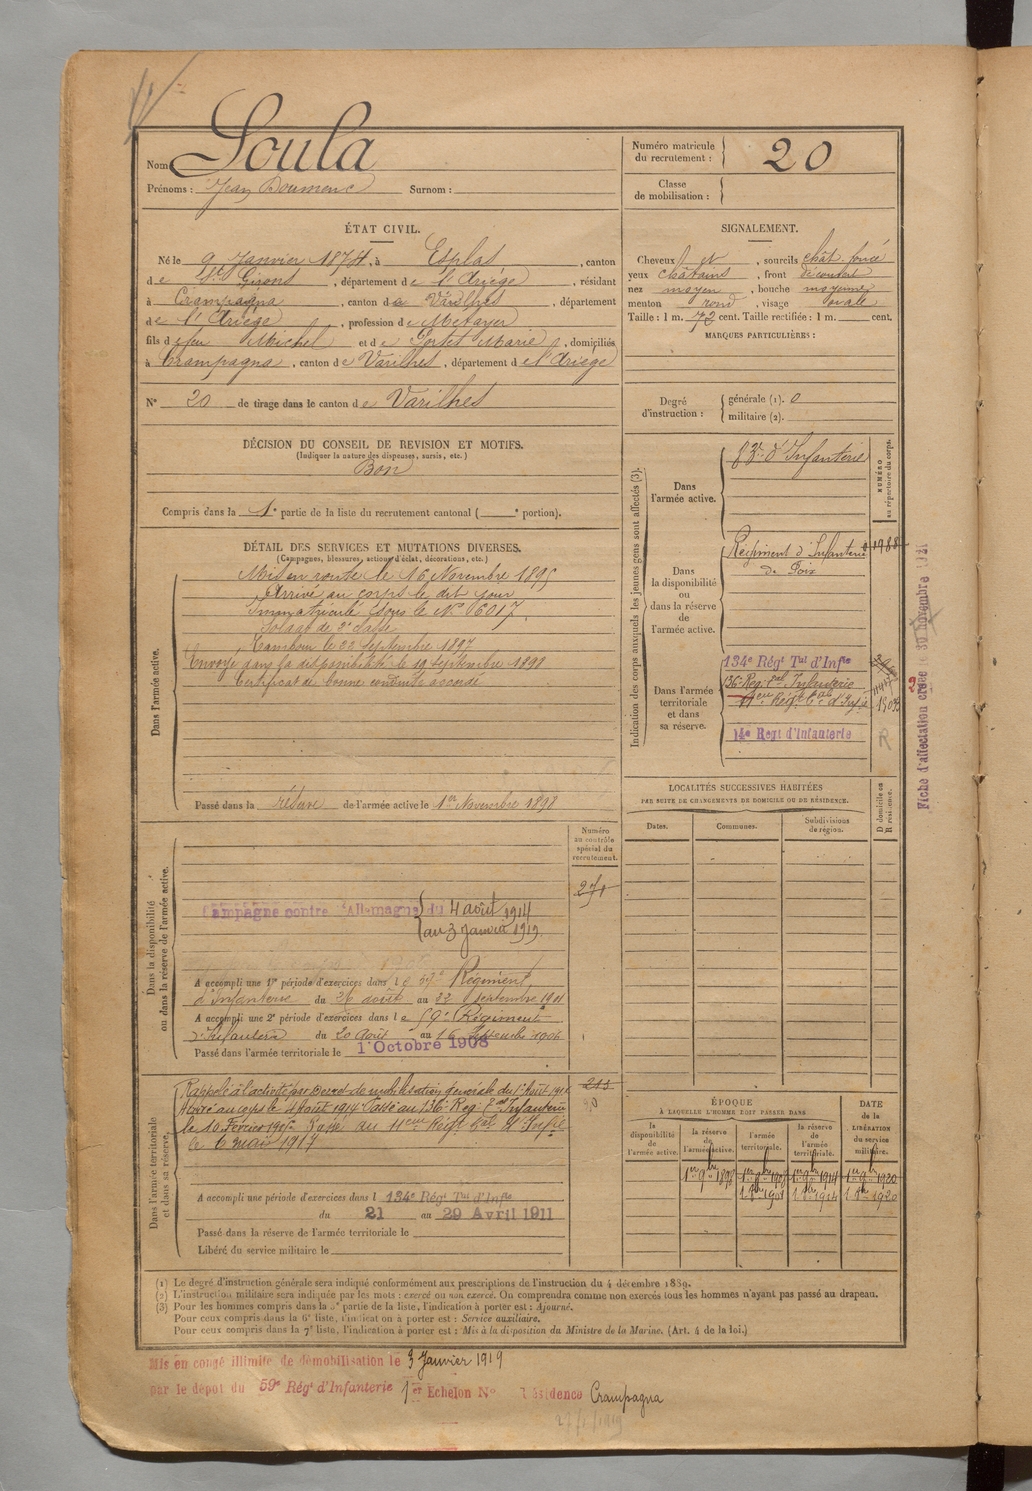 Nom Soula
Prénoms : Jean Doumenc Surnom :
Numéro matricule du recrutement : 20
Classe de mobilisation :
ÉTAT CIVIL.
Né le 9 Janvier 1874, à Esplas, canton
de St Girons, département de l'Ariège, résidant
à Crampagna, canton de Varilhes, département
de l'Ariège, profession de Métayer
fils de feu Michel et de Portet Marie, domiciliés
à Crampagna, canton de Varilhes, département de l'Ariège
N° 20 de tirage dans le canton de Varilhes
SIGNALEMENT.
Cheveux et, sourcils chât. foncé
yeux châtains, front découvert
nez moyen, bouche moyenne
menton rond, visage ovale
Taille : 1 m. 72 cent. Taille rectifiée : 1 m. cent.
MARQUES PARTICULIÈRES :
Degré d'instruction : générale (1). 0
militaire (2).
DÉCISION DU CONSEIL DE REVISION ET MOTIFS.
(Indiquer la nature des dispenses, sursis, etc.)
Bon
Compris dans la 1e partie de la liste du recrutement cantonal ( e portion).
DÉTAIL DES SERVICES ET MUTATIONS DIVERSES.
(Campagnes, blessures, actions d'éclat, décorations, etc.)
Dans l'armée active.
Mis en route le 16 Novembre 1895
Arrivé au corps le dit jour
Immatriculé sous le N° 6017.
Soldat de 2e classe
Tambour le 22 Septembre 1897
Envoyé dans la disponibilité le 19 Septembre 1898
Certificat de bonne conduite accordé
Passé dans la réserve de l'armée active le 1er Novembre 1898
Indication des corps auxquels les jeunes gens sont affectés (3).
NUMÉRO au répertoire du corps.
Dans l'armée active.
d'Infanterie
Dans la disponibilité ou dans la réserve de l'armée active.
Régiment d'Infanterie 1988
de Foix
Dans l'armée territoriale et dans sa réserve.
134e Régt Tal d'Infie
136e Reg. Tal Infanterie
11eme Régt Tal d'Infie
14e Regt d'Infanterie
R
Fiche d'affectation créée le 30 novembre
LOCALITÉS SUCCESSIVES HABITÉES
PAR SUITE DE CHANGEMENTS DE DOMICILE OU DE RÉSIDENCE.
Dates. Communes. Subdivisions de région. D domicile ou R résidence.
Dans la disponibilité ou dans la réserve de l'armée active.
Numéro au contrôle spécial du recrutement.
Campagne contre l'Allemagne du 4 août 1914
au 3 janvier 1919.
A accompli une 1re période d'exercices dans le 59e Régiment
d'Infanterie du 26 août au 22 Septembre 1901
A accompli une 2e période d'exercices dans le 59e Régiment
d'Infanterie du 20 Août au 16 Septembre 1904
Passé dans l'armée territoriale le 1er Octobre 1908
Dans l'armée territoriale et dans sa réserve.
Rappelé à l'activité par Décret de mobilisation générale du 1er Août 1914
Arrivé au corps le 4 Août 1914. Passé au 136e Reg. Tal Infanterie
le 10 Février 1915. Passé au 11eme Régt Tal d'Infie
le 6 mai 1917
213
A accompli une période d'exercices dans l 134e Régt Tal d'Infie
du 21 au 29 Avril 1911
Passé dans la réserve de l'armée territoriale le
Libéré du service militaire le
ÉPOQUE
À LAQUELLE L'HOMME DOIT PASSER DANS
la disponibilité de l'armée active. la réserve de l'armée active. l'armée territoriale. la réserve de l'armée territoriale.
DATE de la LIBÉRATION du service militaire.
1er 9bre 1898 1er 9bre 1908 1er 9bre 1914 1er 9bre 1920
(1) Le degré d'instruction générale sera indiqué conformément aux prescriptions de l'instruction du 4 décembre 1889.
(2) L'instruction militaire sera indiquée par les mots : exercé ou non exercé. On comprendra comme non exercés tous les hommes n'ayant pas passé au drapeau.
(3) Pour les hommes compris dans la 5e partie de la liste, l'indication à porter est : Ajourné.
Pour ceux compris dans la 6e liste, l'indication à porter est : Service auxiliaire.
Pour ceux compris dans la 7e liste, l'indication à porter est : Mis à la disposition du Ministre de la Marine. (Art. 4 de la loi.)
Mis en congé illimité de démobilisation le 3 Janvier 1919
par le dépôt du 59e Régt d'Infanterie 1er Echelon N° Résidence Crampagna